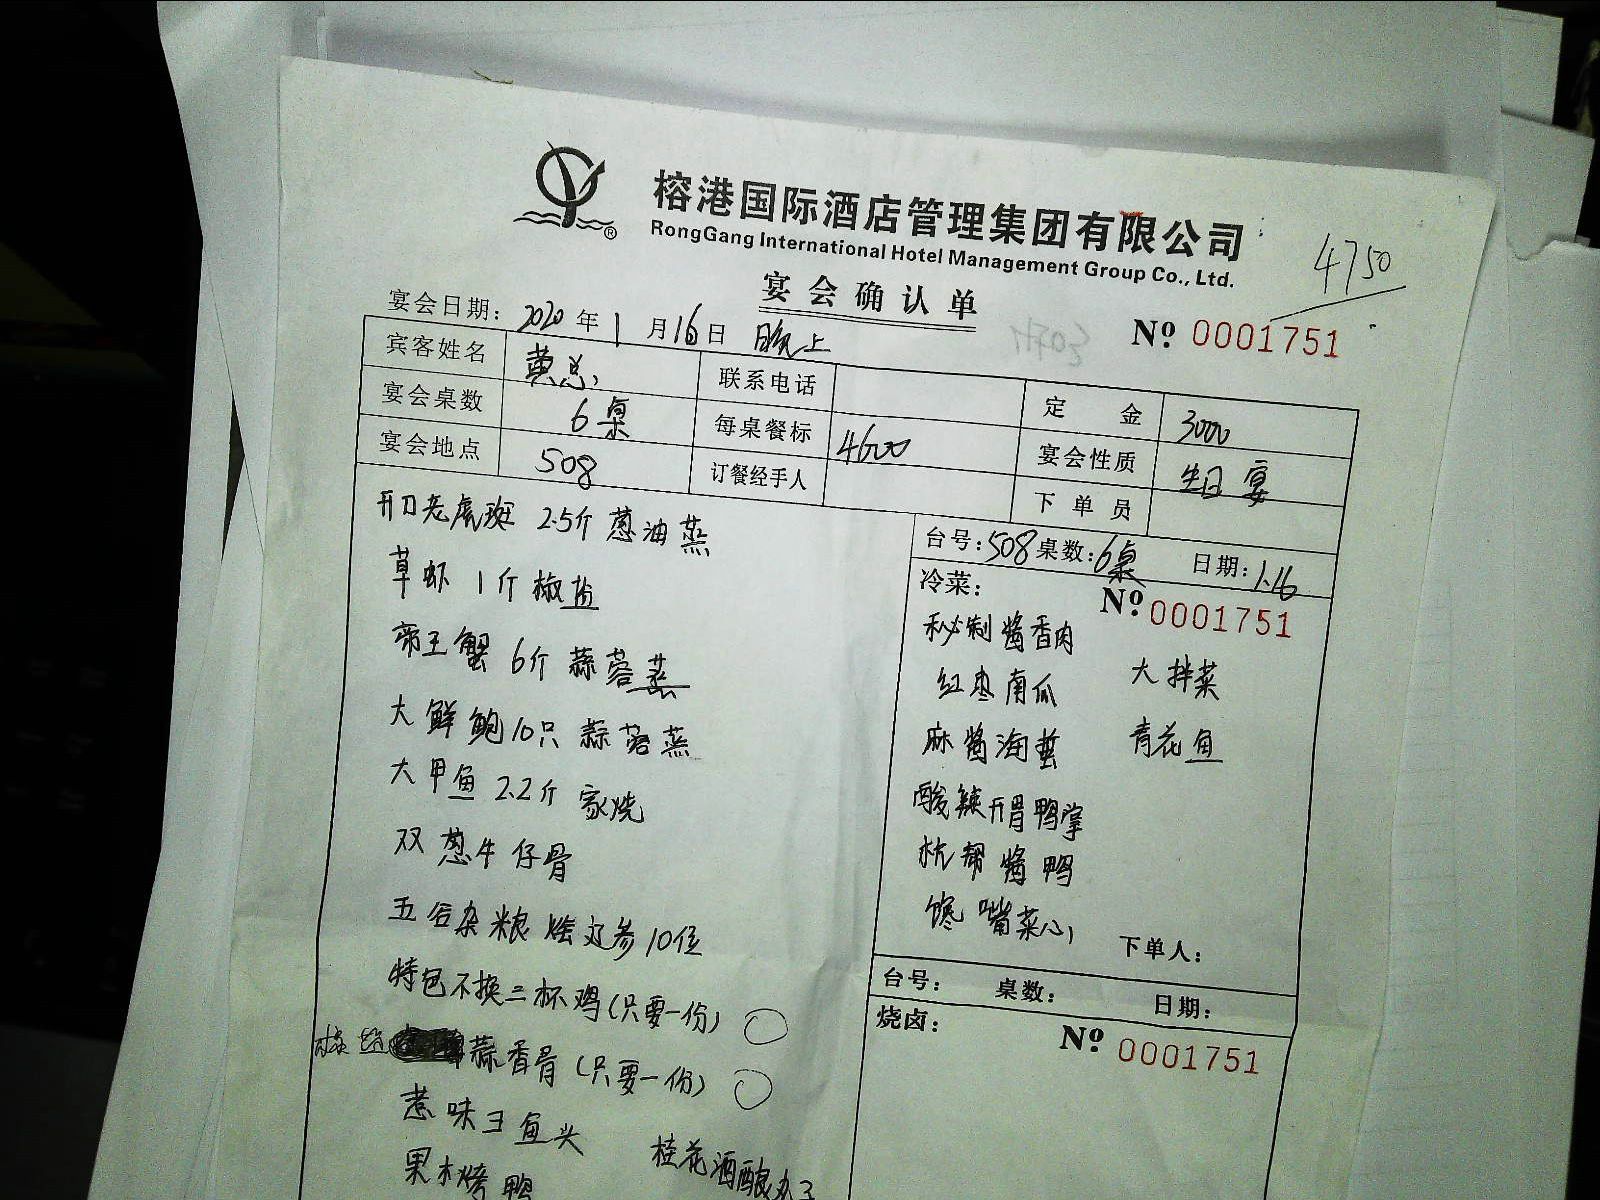 榕港国际酒店管理集团有限公司
RongGang International Hotel Management Group Co., Ltd.
4750
宴会确认单
宴会日期: 2020 年 1 月 16 日 晚上
Nº 0001751
宾客姓名 黄总 联系电话 定金 3000
宴会桌数 6桌 每桌餐标 4600 宴会性质 生日宴
宴会地点 508 订餐经手人 下单员
开刀老虎斑 2.5斤 葱油蒸
草虾 1斤 椒盐
帝王蟹 6斤 蒜蓉蒸
大鲜鲍10只 蒜蓉蒸
大甲鱼 2.2斤 家烧
双葱牛仔骨
五谷杂粮烩辽参10位
特色不换三杯鸡(只要一份)
蒜香骨(只要一份)
惹味王鱼头
桂花酒酿丸子
果木烤鸭
台号: 508 桌数: 6桌 日期: 1.16
冷菜:
Nº 0001751
秘制酱香肉
大拌菜
红枣南瓜
青花鱼
麻酱海蜇
酸辣开胃鸭掌
杭帮酱鸭
馋嘴菜心
下单人:
台号: 桌数: 日期:
烧卤:
Nº 0001751